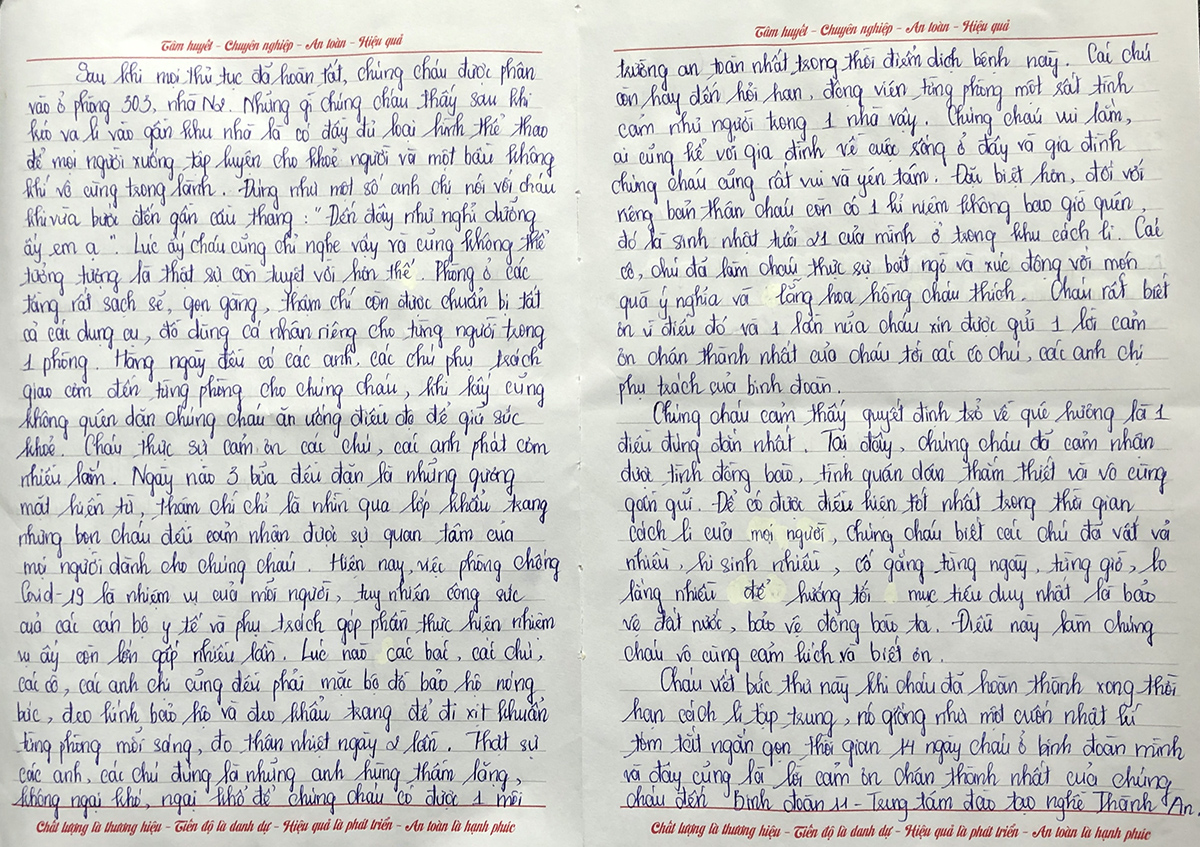 Tâm huyết - Chuyên nghiệp - An toàn - Hiệu quả
Sau khi mọi thủ tục đã hoàn tất, chúng cháu được phân
vào ở phòng 303, nhà N2. Những gì chúng cháu thấy sau khi
kéo va li vào gần khu nhà là có đầy đủ loại hình thể thao
để mọi người xuống tập luyện cho khoẻ người và một bầu không
khí vô cùng trong lành. Đúng như một số anh chị nói với cháu
khi vừa bước đến gần cầu thang: "Đến đây như nghỉ dưỡng
ấy em ạ". Lúc ấy cháu cũng chỉ nghe vậy và cũng không thể
tưởng tượng là thật sự còn tuyệt vời hơn thế. Phòng ở các
tầng rất sạch sẽ, gọn gàng, thậm chí còn được chuẩn bị tất
cả các dụng cụ, đồ dùng cá nhân riêng cho từng người trong
1 phòng. Hàng ngày đều có các anh, các chú phụ trách
giao cơm đến từng phòng cho chúng cháu, khi lấy cũng
không quên dặn chúng cháu ăn uống điều độ để giữ sức
khoẻ. Cháu thực sự cảm ơn các chú, các anh phát cơm
nhiều lắm. Ngày nào 3 bữa đều đặn là những gương
mặt hiền từ, thậm chí chỉ là nhìn qua lớp khẩu trang
nhưng bọn cháu đều cảm nhận được sự quan tâm của
mọi người dành cho chúng cháu. Hiện nay, việc phòng chống
Covid-19 là nhiệm vụ của mỗi người, tuy nhiên công sức
của các cán bộ y tế và phụ trách góp phần thực hiện nhiệm
vụ ấy còn lớn gấp nhiều lần. Lúc nào các bác, các chú,
các cô, các anh chị cũng đều phải mặc bộ đồ bảo hộ nóng
bức, đeo kính bảo hộ và đeo khẩu trang để đi xịt khuẩn
từng phòng mỗi sáng, đo thân nhiệt ngày 2 lần. Thật sự
các anh, các chú đúng là những anh hùng thầm lặng,
không ngại khó, ngại khổ để chúng cháu có được 1 môi
Chất lượng là thương hiệu - Tiến độ là danh dự - Hiệu quả là phát triển - An toàn là hạnh phúc
Tâm huyết - Chuyên nghiệp - An toàn - Hiệu quả
trường an toàn nhất trong thời điểm dịch bệnh này. Các chú
còn hay đến hỏi han, động viên từng phòng một rất tình
cảm như người trong 1 nhà vậy. Chúng cháu vui lắm,
ai cũng kể với gia đình về cuộc sống ở đây và gia đình
chúng cháu cũng rất vui và yên tâm. Đặc biệt hơn, đối với
riêng bản thân cháu còn có 1 kỉ niệm không bao giờ quên,
đó là sinh nhật tuổi 21 của mình ở trong khu cách li. Các
cô, chú đã làm cháu thực sự bất ngờ và xúc động với món
quà ý nghĩa và lẵng hoa hồng cháu thích. Cháu rất biết
ơn vì điều đó và 1 lần nữa cháu xin được gửi 1 lời cảm
ơn chân thành nhất của cháu tới các cô chú, các anh chị
phụ trách của binh đoàn.
Chúng cháu cảm thấy quyết định trở về quê hương là 1
điều đúng đắn nhất. Tại đây, chúng cháu đã cảm nhận
được tình đồng bào, tình quân dân thắm thiết và vô cùng
gần gũi. Để có được điều kiện tốt nhất trong thời gian
cách li của mọi người, chúng cháu biết các chú đã vất vả
nhiều, hi sinh nhiều, cố gắng từng ngày, từng giờ, lo
lắng nhiều để hướng tới mục tiêu duy nhất là bảo
vệ đất nước, bảo vệ đồng bào ta. Điều này làm chúng
cháu vô cùng cảm kích và biết ơn.
Cháu viết bức thư này khi cháu đã hoàn thành xong thời
hạn cách li tập trung, nó giống như một cuốn nhật kí
tóm tắt ngắn gọn thời gian 14 ngày cháu ở binh đoàn mình
và đây cũng là lời cảm ơn chân thành nhất của chúng
cháu đến Binh đoàn 11 - Trung tâm đào tạo nghề Thành An.
Chất lượng là thương hiệu - Tiến độ là danh dự - Hiệu quả là phát triển - An toàn là hạnh phúc